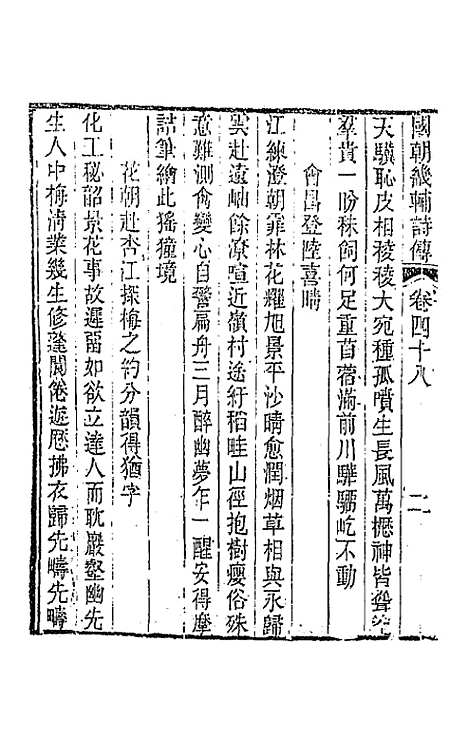 國朝畿輔詩傳 卷四十八 二
天驥恥皮相稜稜大宛種孤噴生長風萬櫪神皆聳空
羣貴一盼秣飼何足重苜蓿滿前川驊騮屹不動
會昌登陸喜晴
江練澄朝霏林花耀旭景平沙晴愈潤烟草相與永歸
雲赴遠岫餘潦喧近嶺村迻紆稻畦山徑抱樹癭俗殊
意難測禽變心自警扁舟三月醉幽夢年一醒安得摩
詰筆繪此猺獞境
花朝赴杏江探梅之約分韻得猶字
化工秘韶景花事故遲畱如欲立達人而耽巖壑幽先
生人中梅淸業幾生修蓬閬倦遊歷拂衣歸先疇先疇